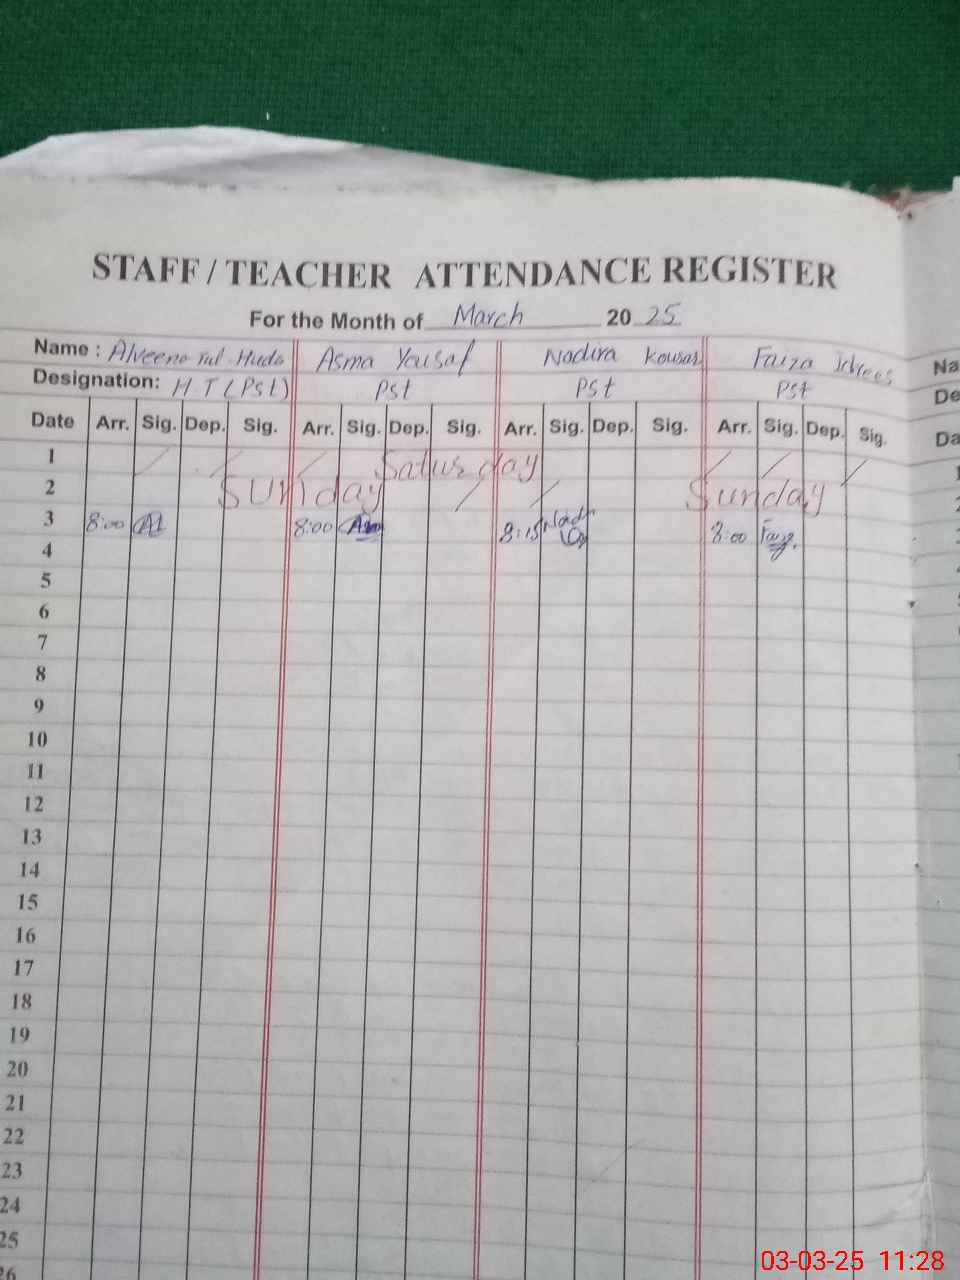 STAFF / TEACHER ATTENDANCE REGISTER
For the Month of March 2025
Name : Alveena tul Huda Asma Yousaf Nadira Kousar Faiza Na
Designation: H T (Pst) Pst Pst Pst De
Date Arr. Sig. Dep. Sig. Arr. Sig. Dep. Sig. Arr. Sig. Dep. Sig. Arr. Sig. Dep. Sig. Da
1 Saturday
2 Sunday Sunday
3 8:00 8:00 8:15 8:00
4
5
6
7
8
9
10
11
12
13
14
15
16
17
18
19
20
21
22
23
24
25
26
03-03-25 11:28